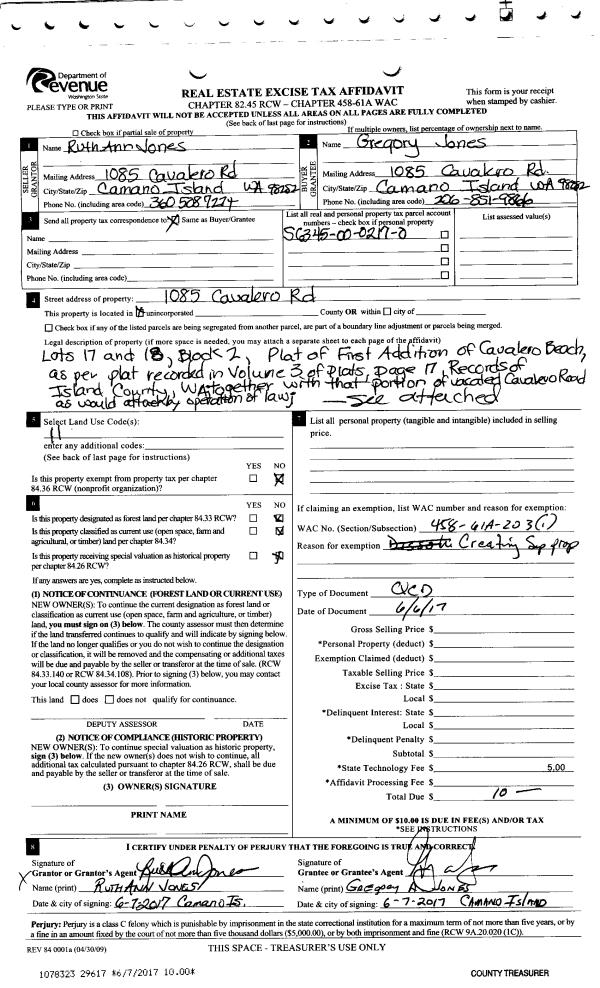 Department of
Revenue
Washington State
PLEASE TYPE OR PRINT
REAL ESTATE EXCISE TAX AFFIDAVIT
CHAPTER 82.45 RCW – CHAPTER 458-61A WAC
This form is your receipt
when stamped by cashier.
THIS AFFIDAVIT WILL NOT BE ACCEPTED UNLESS ALL AREAS ON ALL PAGES ARE FULLY COMPLETED
(See back of last page for instructions)
Check box if partial sale of property
If multiple owners, list percentage of ownership next to name.
1 Name Ruth Ann Jones
SELLER GRANTOR
Mailing Address 1085 Cavalero Rd
City/State/Zip Camano Island WA 98282
Phone No. (including area code) 360 5087224
2 Name Gregory Jones
BUYER GRANTEE
Mailing Address 1085 Cavalero Rd.
City/State/Zip Camano Island WA 98282
Phone No. (including area code) 206-851-9866
3 Send all property tax correspondence to: Same as Buyer/Grantee
Name
Mailing Address
City/State/Zip
Phone No. (including area code)
List all real and personal property tax parcel account
numbers – check box if personal property
S6345-00-0217-0
List assessed value(s)
4 Street address of property: 1085 Cavalero Rd
This property is located in unincorporated County OR within city of
Check box if any of the listed parcels are being segregated from another parcel, are part of a boundary line adjustment or parcels being merged.
Legal description of property (if more space is needed, you may attach a separate sheet to each page of the affidavit)
Lots 17 and 18, Block 2, Plat of First Addition of Cavalero Beach,
as per plat recorded in Volume 3 of plats, page 17, Records of
Island County, WA together with that portion of vacated Cavalero Road
as would attach by operation of law; see attached
5 Select Land Use Code(s):
11
enter any additional codes:
(See back of last page for instructions)
YES NO
Is this property exempt from property tax per chapter
84.36 RCW (nonprofit organization)?
6 YES NO
Is this property designated as forest land per chapter 84.33 RCW?
Is this property classified as current use (open space, farm and
agricultural, or timber) land per chapter 84.34?
Is this property receiving special valuation as historical property
per chapter 84.26 RCW?
If any answers are yes, complete as instructed below.
(1) NOTICE OF CONTINUANCE (FOREST LAND OR CURRENT USE)
NEW OWNER(S): To continue the current designation as forest land or
classification as current use (open space, farm and agriculture, or timber)
land, you must sign on (3) below. The county assessor must then determine
if the land transferred continues to qualify and will indicate by signing below.
If the land no longer qualifies or you do not wish to continue the designation
or classification, it will be removed and the compensating or additional taxes
will be due and payable by the seller or transferor at the time of sale. (RCW
84.33.140 or RCW 84.34.108). Prior to signing (3) below, you may contact
your local county assessor for more information.
This land does does not qualify for continuance.
DEPUTY ASSESSOR DATE
(2) NOTICE OF COMPLIANCE (HISTORIC PROPERTY)
NEW OWNER(S): To continue special valuation as historic property,
sign (3) below. If the new owner(s) does not wish to continue, all
additional tax calculated pursuant to chapter 84.26 RCW, shall be due
and payable by the seller or transferor at the time of sale.
(3) OWNER(S) SIGNATURE
PRINT NAME
7 List all personal property (tangible and intangible) included in selling
price.
If claiming an exemption, list WAC number and reason for exemption:
WAC No. (Section/Subsection) 458-61A-203(1)
Reason for exemption Creating Sep prop
Type of Document QCD
Date of Document 6/6/17
Gross Selling Price $
*Personal Property (deduct) $
Exemption Claimed (deduct) $
Taxable Selling Price $
Excise Tax : State $
Local $
*Delinquent Interest: State $
Local $
*Delinquent Penalty $
Subtotal $
*State Technology Fee $ 5.00
*Affidavit Processing Fee $
Total Due $ 10 —
A MINIMUM OF $10.00 IS DUE IN FEE(S) AND/OR TAX
*SEE INSTRUCTIONS
8 I CERTIFY UNDER PENALTY OF PERJURY THAT THE FOREGOING IS TRUE AND CORRECT.
Signature of
Grantor or Grantor's Agent Ruth Ann Jones
Name (print) RUTH ANN JONES
Date & city of signing: 6-7-2017 Camano Is.
Signature of
Grantee or Grantee's Agent
Name (print) GREGORY A JONES
Date & city of signing: 6-7-2017 CAMANO ISLAND
Perjury: Perjury is a class C felony which is punishable by imprisonment in the state correctional institution for a maximum term of not more than five years, or by
a fine in an amount fixed by the court of not more than five thousand dollars ($5,000.00), or by both imprisonment and fine (RCW 9A.20.020 (1C)).
REV 84 0001a (04/30/09)
THIS SPACE - TREASURER'S USE ONLY
1078323 29617 *6/7/2017 10.00*
COUNTY TREASURER